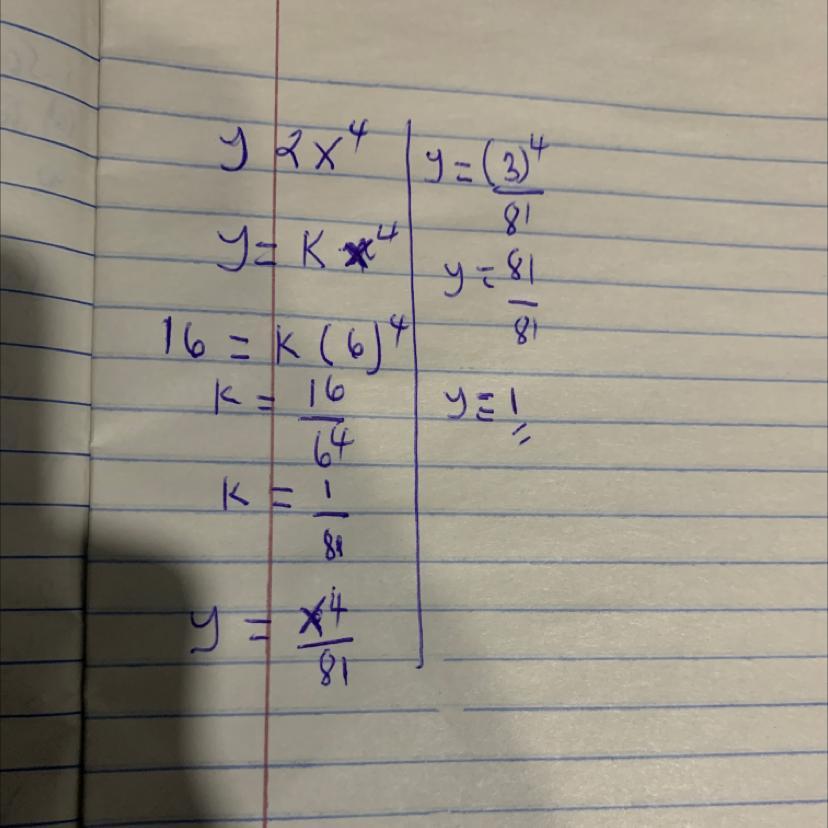 y 2x⁴
y = K x⁴
16 = K (6)⁴
K = 16/6⁴
K = 1/81
y = x⁴/81
y = (3)⁴/81
y = 81/81
y = 1